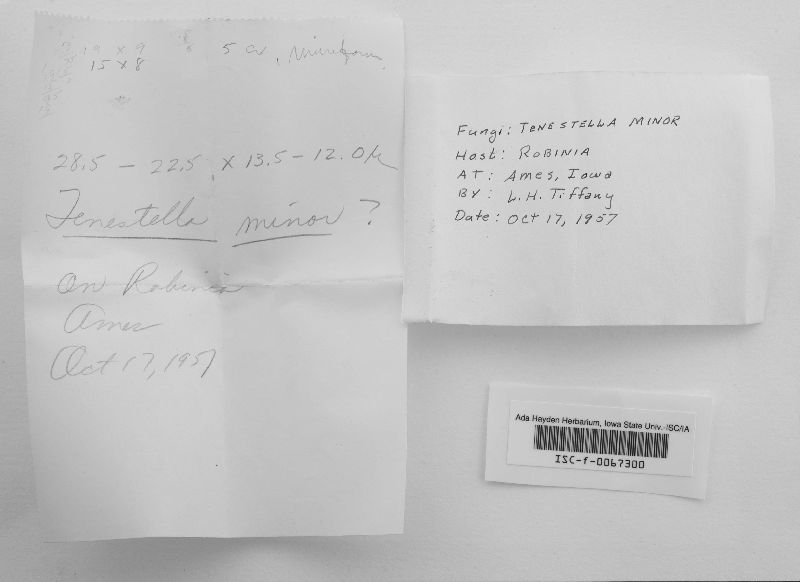 19 x 9
15 x 8
5 a
28.5 — 22.5 x 13.5 — 12.0 μ
Fenestella minor ?
On Robinia
Ames
Oct 17, 1957
Fungi: TENESTELLA MINOR
Host: ROBINIA
AT: Ames, Iowa
BY: L.H. Tiffany
Date: Oct 17, 1957
Ada Hayden Herbarium, Iowa State Univ.-ISC/IA
ISC-f-0067300